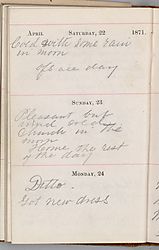 APRIL SATURDAY, 22 1871.
Cold with some rain
in morn
Office day
SUNDAY, 23
Pleasant but
wind cold
Church in the
morn
Home the rest
of the day
MONDAY, 24
Ditto.
Got new dress